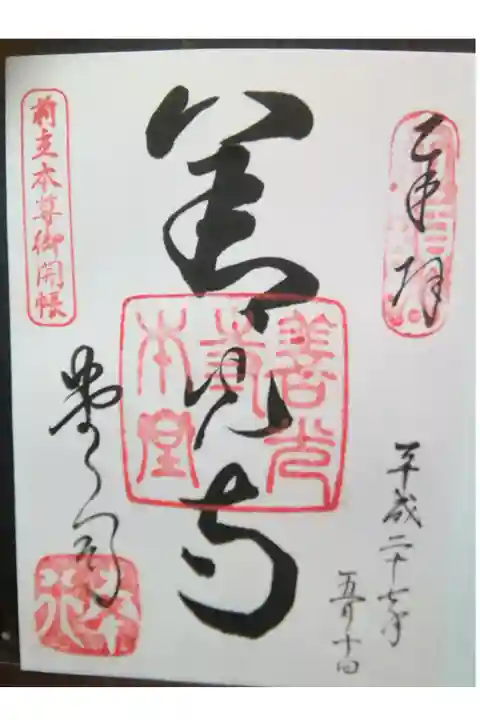 奉拝
平成二十七年
五月十日
善光寺
善光寺本堂
前立本尊御開帳